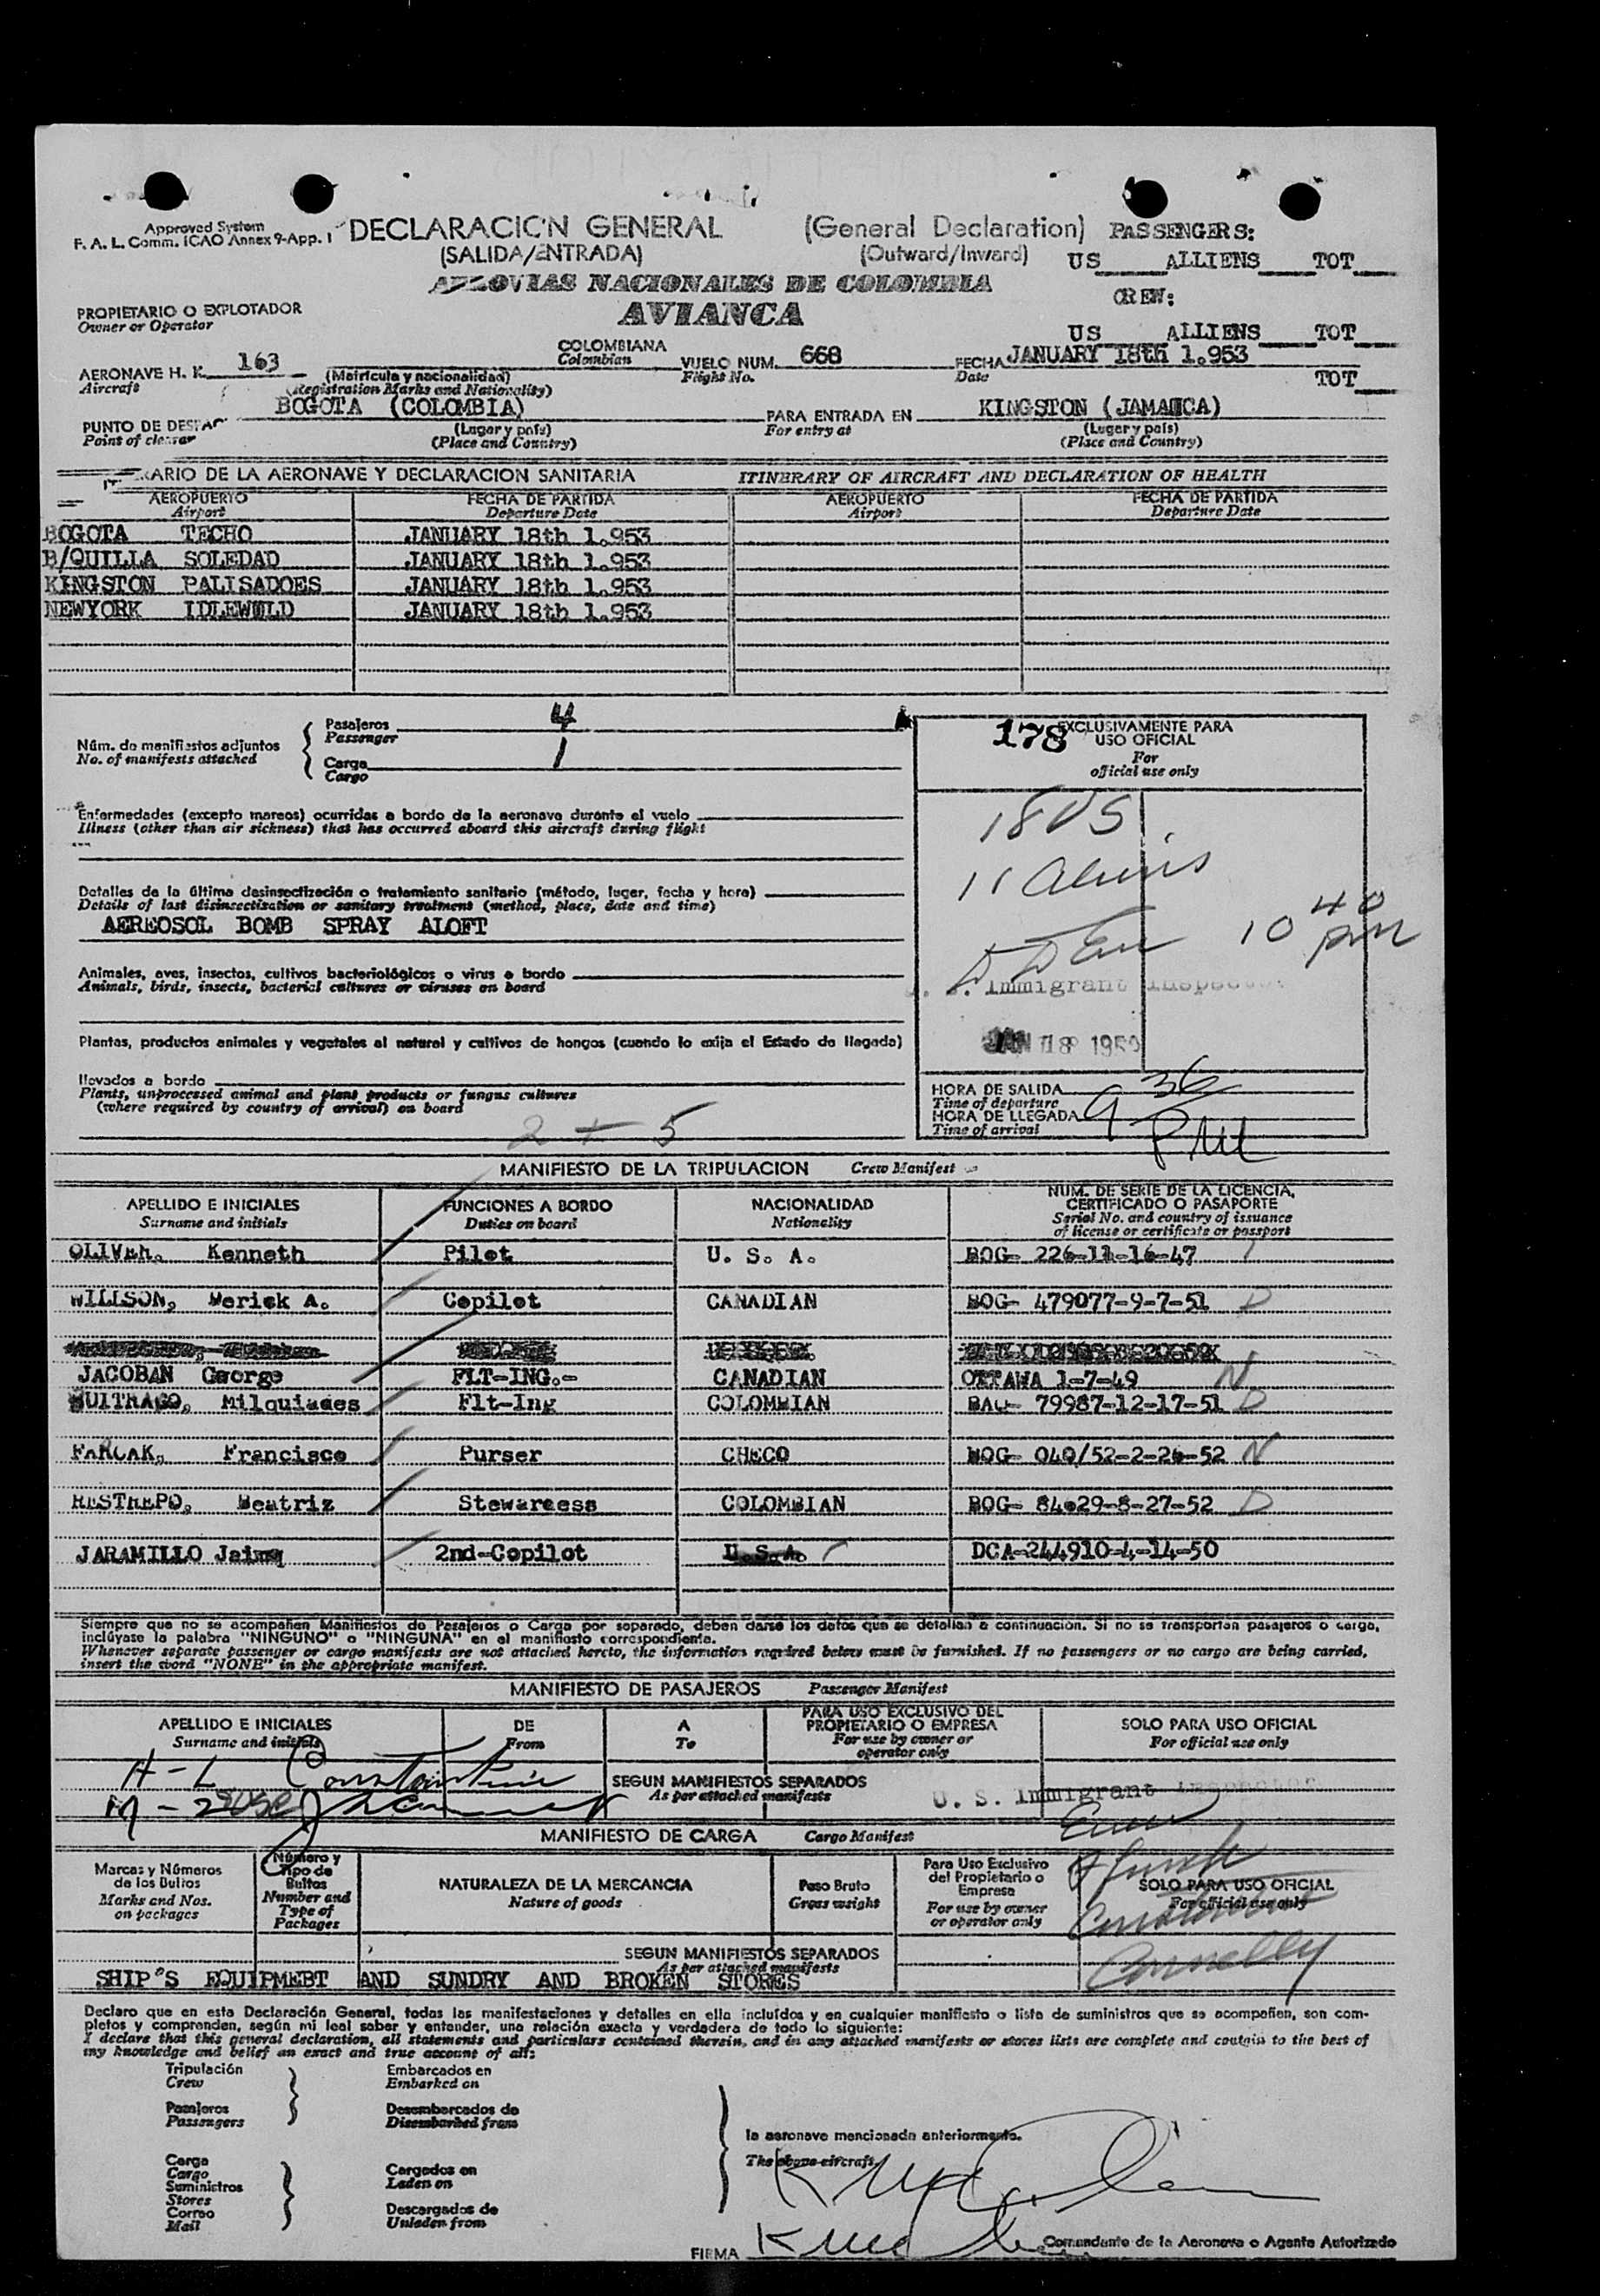 Approved System
F. A. L. Comm. ICAO Annex 9-App. 1
DECLARACION GENERAL (General Declaration)
(SALIDA/ENTRADA) (Outward/Inward)
PASSENGERS:
US ALLIENS TOT
AEROVIAS NACIONALES DE COLOMBIA
AVIANCA
CREW:
US ALLIENS TOT
PROPIETARIO O EXPLOTADOR
Owner or Operator
AERONAVE H. K. 163 COLOMBIANA VUELO NUM. 668 FECHA JANUARY 18th 1.953
Aircraft Colombian Flight No. Date
(Matrícula y nacionalidad)
(Registration Marks and Nationality)
TOT
PUNTO DE DESPAC BOGOTA (COLOMBIA) PARA ENTRADA EN KINGSTON (JAMAICA)
Point of clearan For entry at
(Lugar y país) (Lugar y país)
(Place and Country) (Place and Country)
ARIO DE LA AERONAVE Y DECLARACION SANITARIA ITINERARY OF AIRCRAFT AND DECLARATION OF HEALTH
AEROPUERTO FECHA DE PARTIDA AEROPUERTO FECHA DE PARTIDA
Airport Departure Date Airport Departure Date
BOGOTA TECHO JANUARY 18th 1.953
B/QUILLA SOLEDAD JANUARY 18th 1.953
KINGSTON PALISADOES JANUARY 18th 1.953
NEWYORK IDLEWILD JANUARY 18th 1.953
Núm. de manifiestos adjuntos
No. of manifests attached
Pasajeros 4
Passenger
Carga 1
Cargo
178
EXCLUSIVAMENTE PARA
USO OFICIAL
For
official use only
18 US
11 Aliens
10 40 pm
Immigrant Inspector
JAN 18
Enfermedades (excepto mareos) ocurridas a bordo de la aeronave durante el vuelo
Illness (other than air sickness) that has occurred aboard this aircraft during flight
Detalles de la última desinsectización o tratamiento sanitario (método, lugar, fecha y hora)
Details of last disinsectisation or sanitary treatment (method, place, date and time)
AEREOSOL BOMB SPRAY ALOFT
Animales, aves, insectos, cultivos bacteriológicos o virus a bordo
Animals, birds, insects, bacterial cultures or viruses on board
Plantas, productos animales y vegetales al natural y cultivos de hongos (cuando lo exija el Estado de llegada)
llevados a bordo
Plants, unprocessed animal and plant products or fungus cultures
(where required by country of arrival) on board
HORA DE SALIDA
Time of departure
HORA DE LLEGADA 9 36 PM
Time of arrival
2 + 5
MANIFIESTO DE LA TRIPULACION Crew Manifest
APELLIDO E INICIALES FUNCIONES A BORDO NACIONALIDAD NUM. DE SERIE DE LA LICENCIA, CERTIFICADO O PASAPORTE
Surname and initials Duties on board Nationality Serial No. and country of issuance of license or certificate or passport
OLIVER, Kenneth Pilot U. S. A. BOG- 226-11-16-47
WILLSON, Merick A. Copilot CANADIAN BOG- 479077-9-7-51 D
JACOBAN George FLT-ING.- CANADIAN OTTAWA 1-7-49 N
BUITRAGO, Milquiades Flt-Ing COLOMBIAN BAQ- 79987-12-17-51 D
FARCAK, Francisco Purser CHECO BOG- 040/52-2-26-52 N
RESTREPO, Beatriz Stewardess COLOMBIAN BOG- 84029-8-27-52 D
JARAMILLO Jaime 2nd-Copilot U.S.A. DCA-244910-4-14-50
Siempre que no se acompañen Manifiestos de Pasajeros o Carga por separado, deben darse los datos que se detallan a continuación. Si no se transportan pasajeros o carga,
inclúyase la palabra "NINGUNO" o "NINGUNA" en el manifiesto correspondiente.
Whenever separate passenger or cargo manifests are not attached hereto, the information required below must be furnished. If no passengers or no cargo are being carried,
insert the word "NONE" in the appropriate manifest.
MANIFIESTO DE PASAJEROS Passenger Manifest
APELLIDO E INICIALES DE A PARA USO EXCLUSIVO DEL PROPIETARIO O EMPRESA SOLO PARA USO OFICIAL
Surname and initials From To For use by owner or operator only For official use only
H-L Constantine
SEGUN MANIFIESTOS SEPARADOS
As per attached manifests
U. S. Immigrant Inspector
MANIFIESTO DE CARGA Cargo Manifest
Marcas y Números de los Bultos Número y Tipo de Bultos NATURALEZA DE LA MERCANCIA Peso Bruto Para Uso Exclusivo del Propietario o Empresa SOLO PARA USO OFICIAL
Marks and Nos. on packages Number and Type of Packages Nature of goods Gross weight For use by owner or operator only For official use only
Connelly
SEGUN MANIFIESTOS SEPARADOS
As per attached manifests
SHIP'S EQUIPMEBT AND SUNDRY AND BROKEN STORES
Declaro que en esta Declaración General, todas las manifestaciones y detalles en ella incluídos y en cualquier manifiesto o lista de suministros que se acompañan, son com-
pletos y comprenden, según mi leal saber y entender, una relación exacta y verdadera de todo lo siguiente:
I declare that this general declaration, all statements and particulars contained therein, and in any attached manifests or stores lists are complete and contain to the best of
my knowledge and belief an exact and true account of all:
Tripulación Embarcados en
Crew Embarked on
Pasajeros Desembarcados de
Passengers Disembarked from
la aeronave mencionada anteriormente.
The above aircraft.
Carga Cargados en
Cargo Laden on
Suministros
Stores
Correo Descargados de
Mail Unladen from
FIRMA
Comandante de la Aeronave o Agente Autorizado